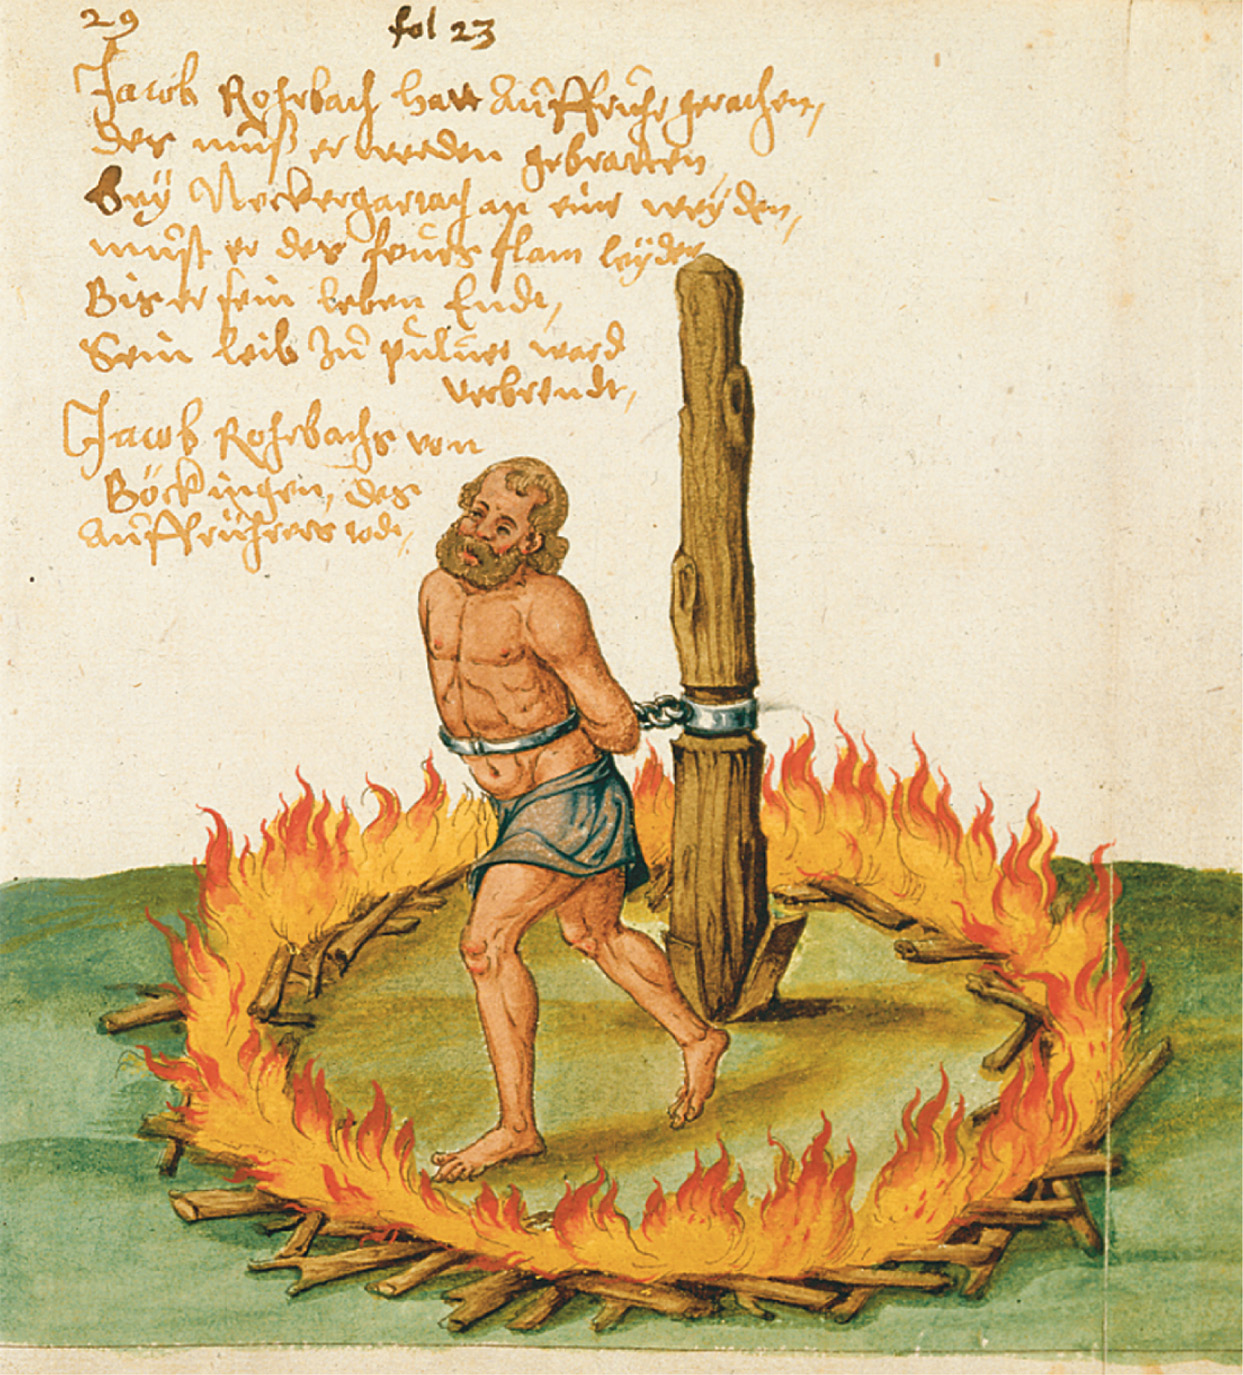 29
fol 23
Jacob Rohrbach hatt Auffruhr gerathen,
des muß er werden gebratten
Bey Neckergartach an eine weyden,
must er des feurs flam leyden
Bis er sein leben Endt,
Sein leib zu puluer ward
verbrendt,
Jacob Rohrbachs von
Böckingen, des
Auffrührers tode,